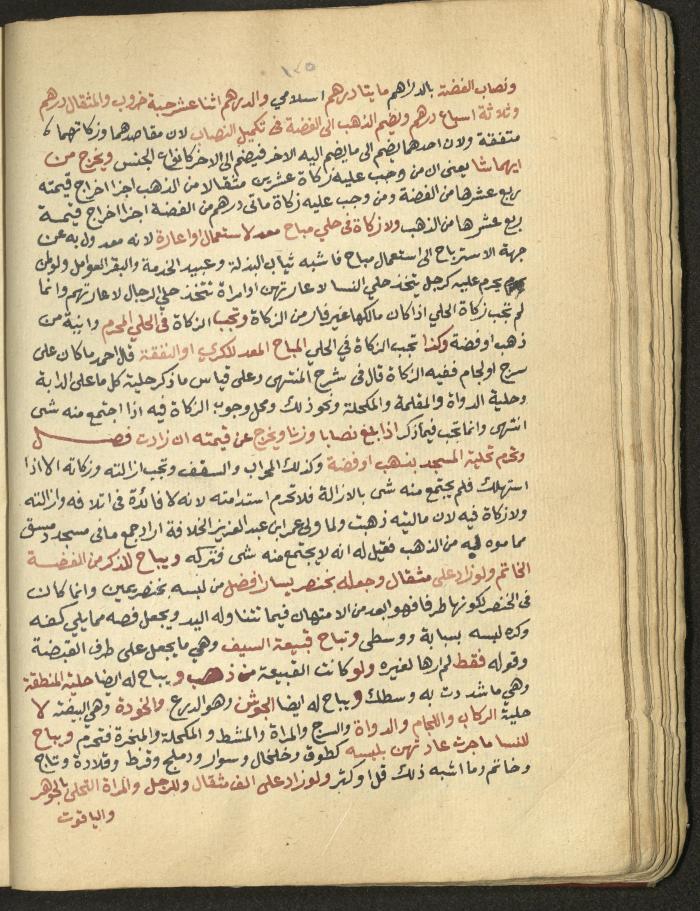 ١٢٥
ونصاب الفضة بالدراهم مايتا درهم اسلامي والدرهم اثنا عشر حبة خروب والمثقال درهم
وثلاثة اسباع درهم ويضم الذهب الى الفضة في تكميل النصاب لان مقاصدهما وزكاتهما
متفقة ولان احدهما يضم الى ما يضم اليه الاخر فيضم الى الاخر كانواع الجنس ويخرج من
ايهما شا يعنى ان من وجب عليه زكاة عشرين مثقالا من الذهب اجزا اخراج قيمته
بربع عشرها من الفضة ومن وجب عليه زكاة ماتى درهم من الفضة اجزا اخراج قيمة
ربع عشرها من الذهب ولا زكاة في حلي مباح معد لاستعمال او اعارة لانه معدول به عن
جهة الاسترباح الى استعمال مباح فاشبه ثياب البذلة وعبيد الخدمة والبقر العوامل ولو لمن
يحرم عليه كرجل يتخذ حلي النسا لاعارتهن او امراة تتخذ حلي الرجال لاعارتهم وانما
لم تجب زكاة الحلي اذا كان مالكها غير فار من الزكاة وتجب الزكاة في الحلي المحرم وانية من
ذهب او فضة وكذا تجب الزكاة في الحلي المباح المعد للكري او النفقة قال احمد ما كان على
سرج او لجام ففيه الزكاة قال في شرح المنتهى وعلى قياس ما ذكر حلية كل ما على الدابة
وحلية الدواة والمقلمة والمكحلة ونحو ذلك ومحل وجوب الزكاة فيه اذا اجتمع منه شى
انتهى وانما تجب فيما ذكر اذا بلغ نصابا وزنا ويخرج عن قيمته ان زادت فصل
وتحرم تحلية المسجد بذهب او فضة وكذلك المحراب والسقف وتجب ازالته وزكاته الا اذا
استهلك فلم يجتمع منه شى بالازالة فلا تحرم استدامته لانه لا فائدة في اتلافه وازالته
ولا زكاة فيه لان ماليته ذهبت ولما ولى عمر ابن عبد العزيز الخلافة اراد جمع ما في مسجد دمشق
مما موه به من الذهب فقيل له انه لا يجتمع منه شى فتركه ويباح للذكر من الفضة
الخاتم ولو زاد على مثقال وجعله بخنصر يسار افضل من لبسه بخنصر يمين وانما كان
في الخنصر لكونها طرفا فهو ابعد من الامتهان فيما تتناوله اليد ويجعل فصه مما يلي كفه
وكره لبسه بسبابة ووسطى وتباح قبيعة السيف وهي ما يجعل على طرف القبضة
وقوله فقط لم ارها لغيره ولو كانت القبيعة من ذهب ويباح له ايضا حلية المنطقة
وهي ما شددت به وسطك ويباح له ايضا الجوشن وهو الدرع والخودة وهي البيضة لا
حلية الركاب واللجام والدواة والسرج والمراة والمشط والمكحلة والمبخرة فتحرم ويباح
للنسا ما جرت عادتهن بلبسه كطوق وخلخال وسوار ودملج وقرط وقلادة وتاج
وخاتم وما اشبه ذلك قل او كثر ولو زاد على الف مثقال وللرجل والمراة التحلي بالجوهر
والياقوت